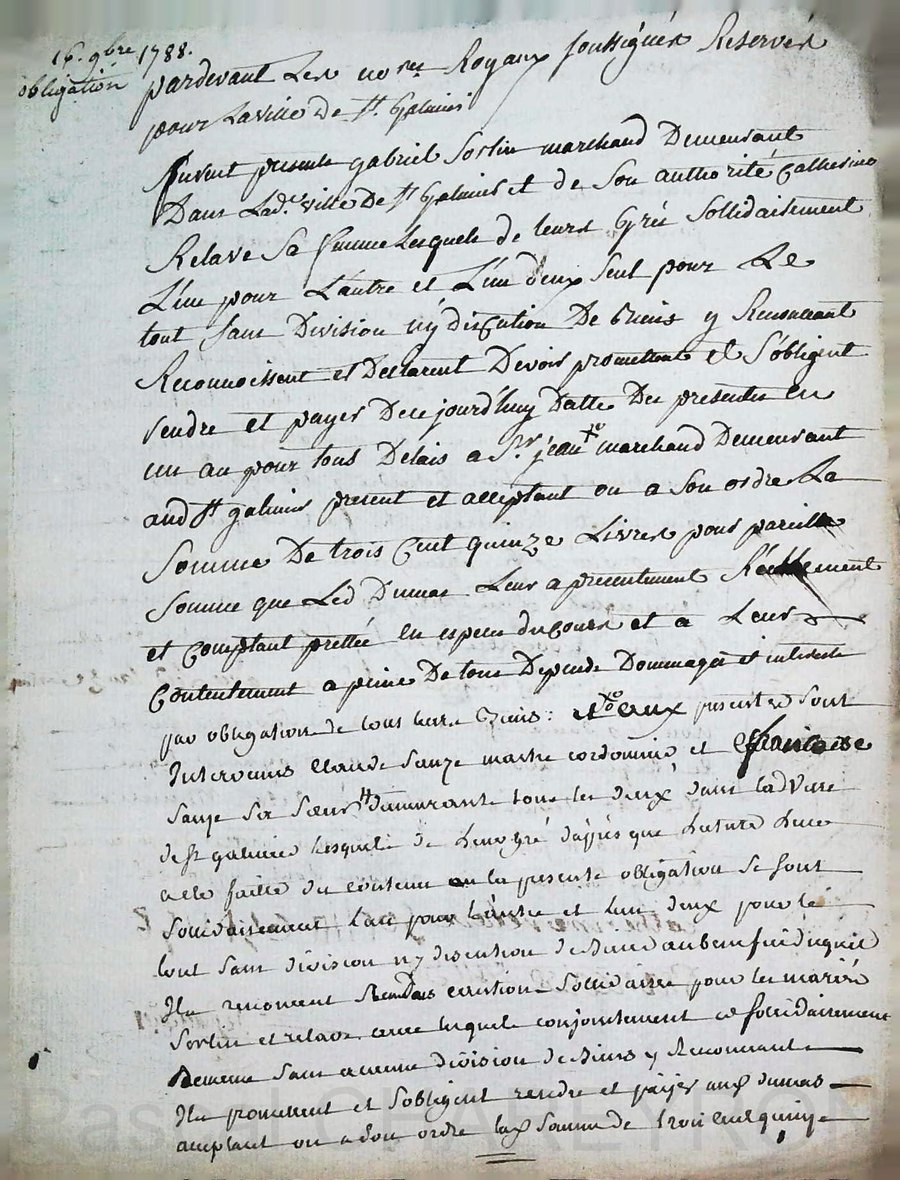 16. 9bre 1788.
obligation
pardevant Les nores Royaux soussignés Reservés
pour La ville De St. Galmier
furent presents gabriel Sorlin marchand Demeurant
Dans Lad. ville De St Galmier et de Son authorité Catherine
Relave Sa femme Lesquels de leurs Gréz Sollidairement
L'un pour L'autre et L'un deux Seul pour Le
tout Sans Division n'y discution De biens y Renonceant
Reconnoissent et Declarent Devoir promettent et S'obligent
rendre et payer De ce jourd'huy Datte Des presentes en
un an pour tous Delais a Sr. jean marchand Demeurant
aud St galmier present et acceptant ou a Son ordre La
Somme De trois Cent quinze Livres pour pareille
Somme que Led Dumas Leur a presentement Réellement
et Comptant prettée en especes du cours et a Leur
Contentement a peine De tous Depends Dommages et interets
par obligation de tous leurs Biens : et aux presentes Sont
Intervenus Claude Sauze maitre cordonnier et francoise
Sauze Sa Sœur demeurant tous les deux dans lad ville
de St galmier Lesquels de Leur gré
a elle faitte du contenu en la presente obligation Se Sont
Sollidairement L'un pour L'autre et L'un deux pour le
tout Sans division n'y discution de Biens au benefice duquel
Ils renoncent caution Sollidaire pour les mariés
Sorlin et relave avec lesquels conjointement et sollidairement
Sans aucune division de Biens y Renonceant
Ils promettent et S'obligent rendre et payer aud dumas
acceptant ou a Son ordre lad Somme de trois cent quinze
Pascal CHAREYRON